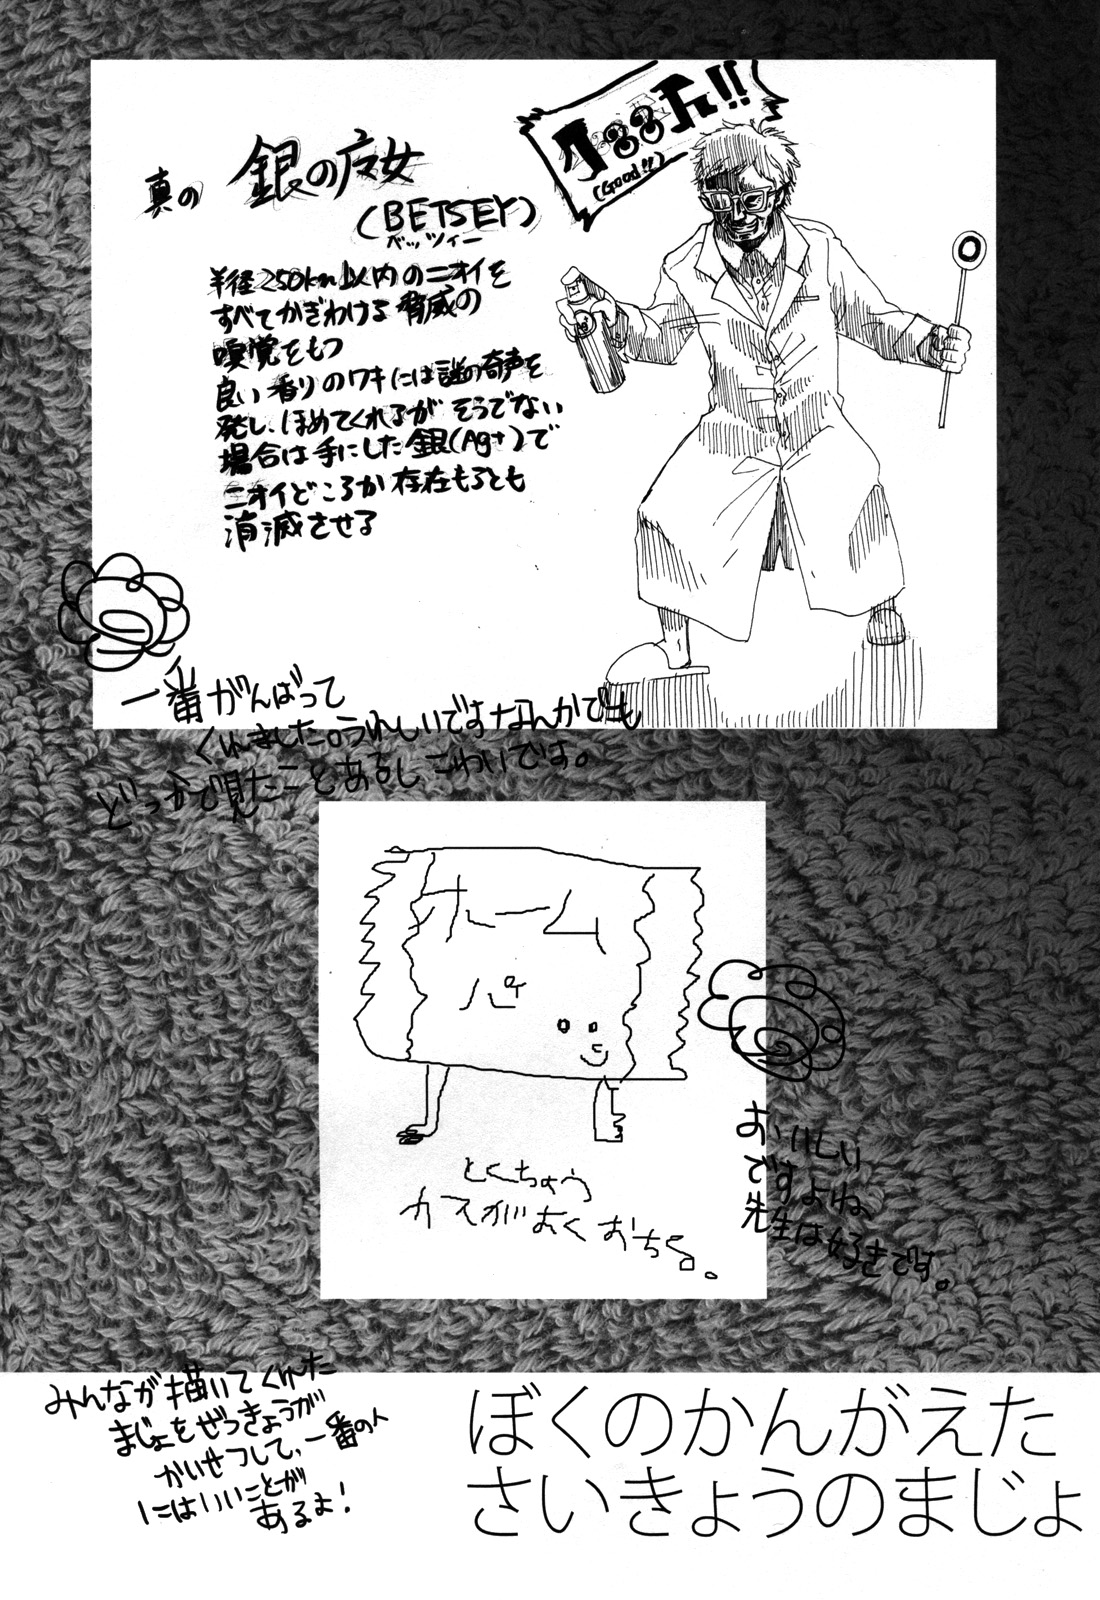 真の 銀の魔女
(BETSEY)
ベッツィー
グッド!!
(Good!!)
半径250km以内のニオイを
すべてかぎわける脅威の
嗅覚をもつ
良い香りのワキには謎の奇声を
発し、ほめてくれるが そうでない
場合は手にした銀(Ag+)で
ニオイどころか 存在もろとも
消滅させる
Ag+
一番がんばって
くれました。うれしいですなんかでも
どっかで見たことあるしこわいです。
ホーム
パイ
とくちょう
カスがおくおちる。
おいしい
ですよね、
先生は好きです。
みんなが描いてくれた
まじょをぜっきょうが
かいせつして、一番の人
にはいいことが
あるよ!
ぼくのかんがえた
さいきょうのまじょ